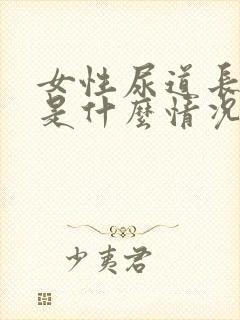 女性尿道長
是什麼情況
少夷君